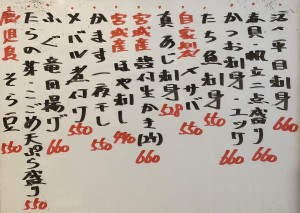 活〆平目刺身 660
春貝・帆立二点盛り 660
かつお刺身・ユッケ 660
たち魚刺身 550
自家製〆サバ 550
真あじ刺身 528
宮城産殻付生かき(1ヶ) 660
宮城産ほや刺し 490
かます一夜干し 550
メバル煮付け 550
ふぐ竜田揚げ 660
たらの芽・こごめ天ぷら盛り 550
鹿児島そら豆 550